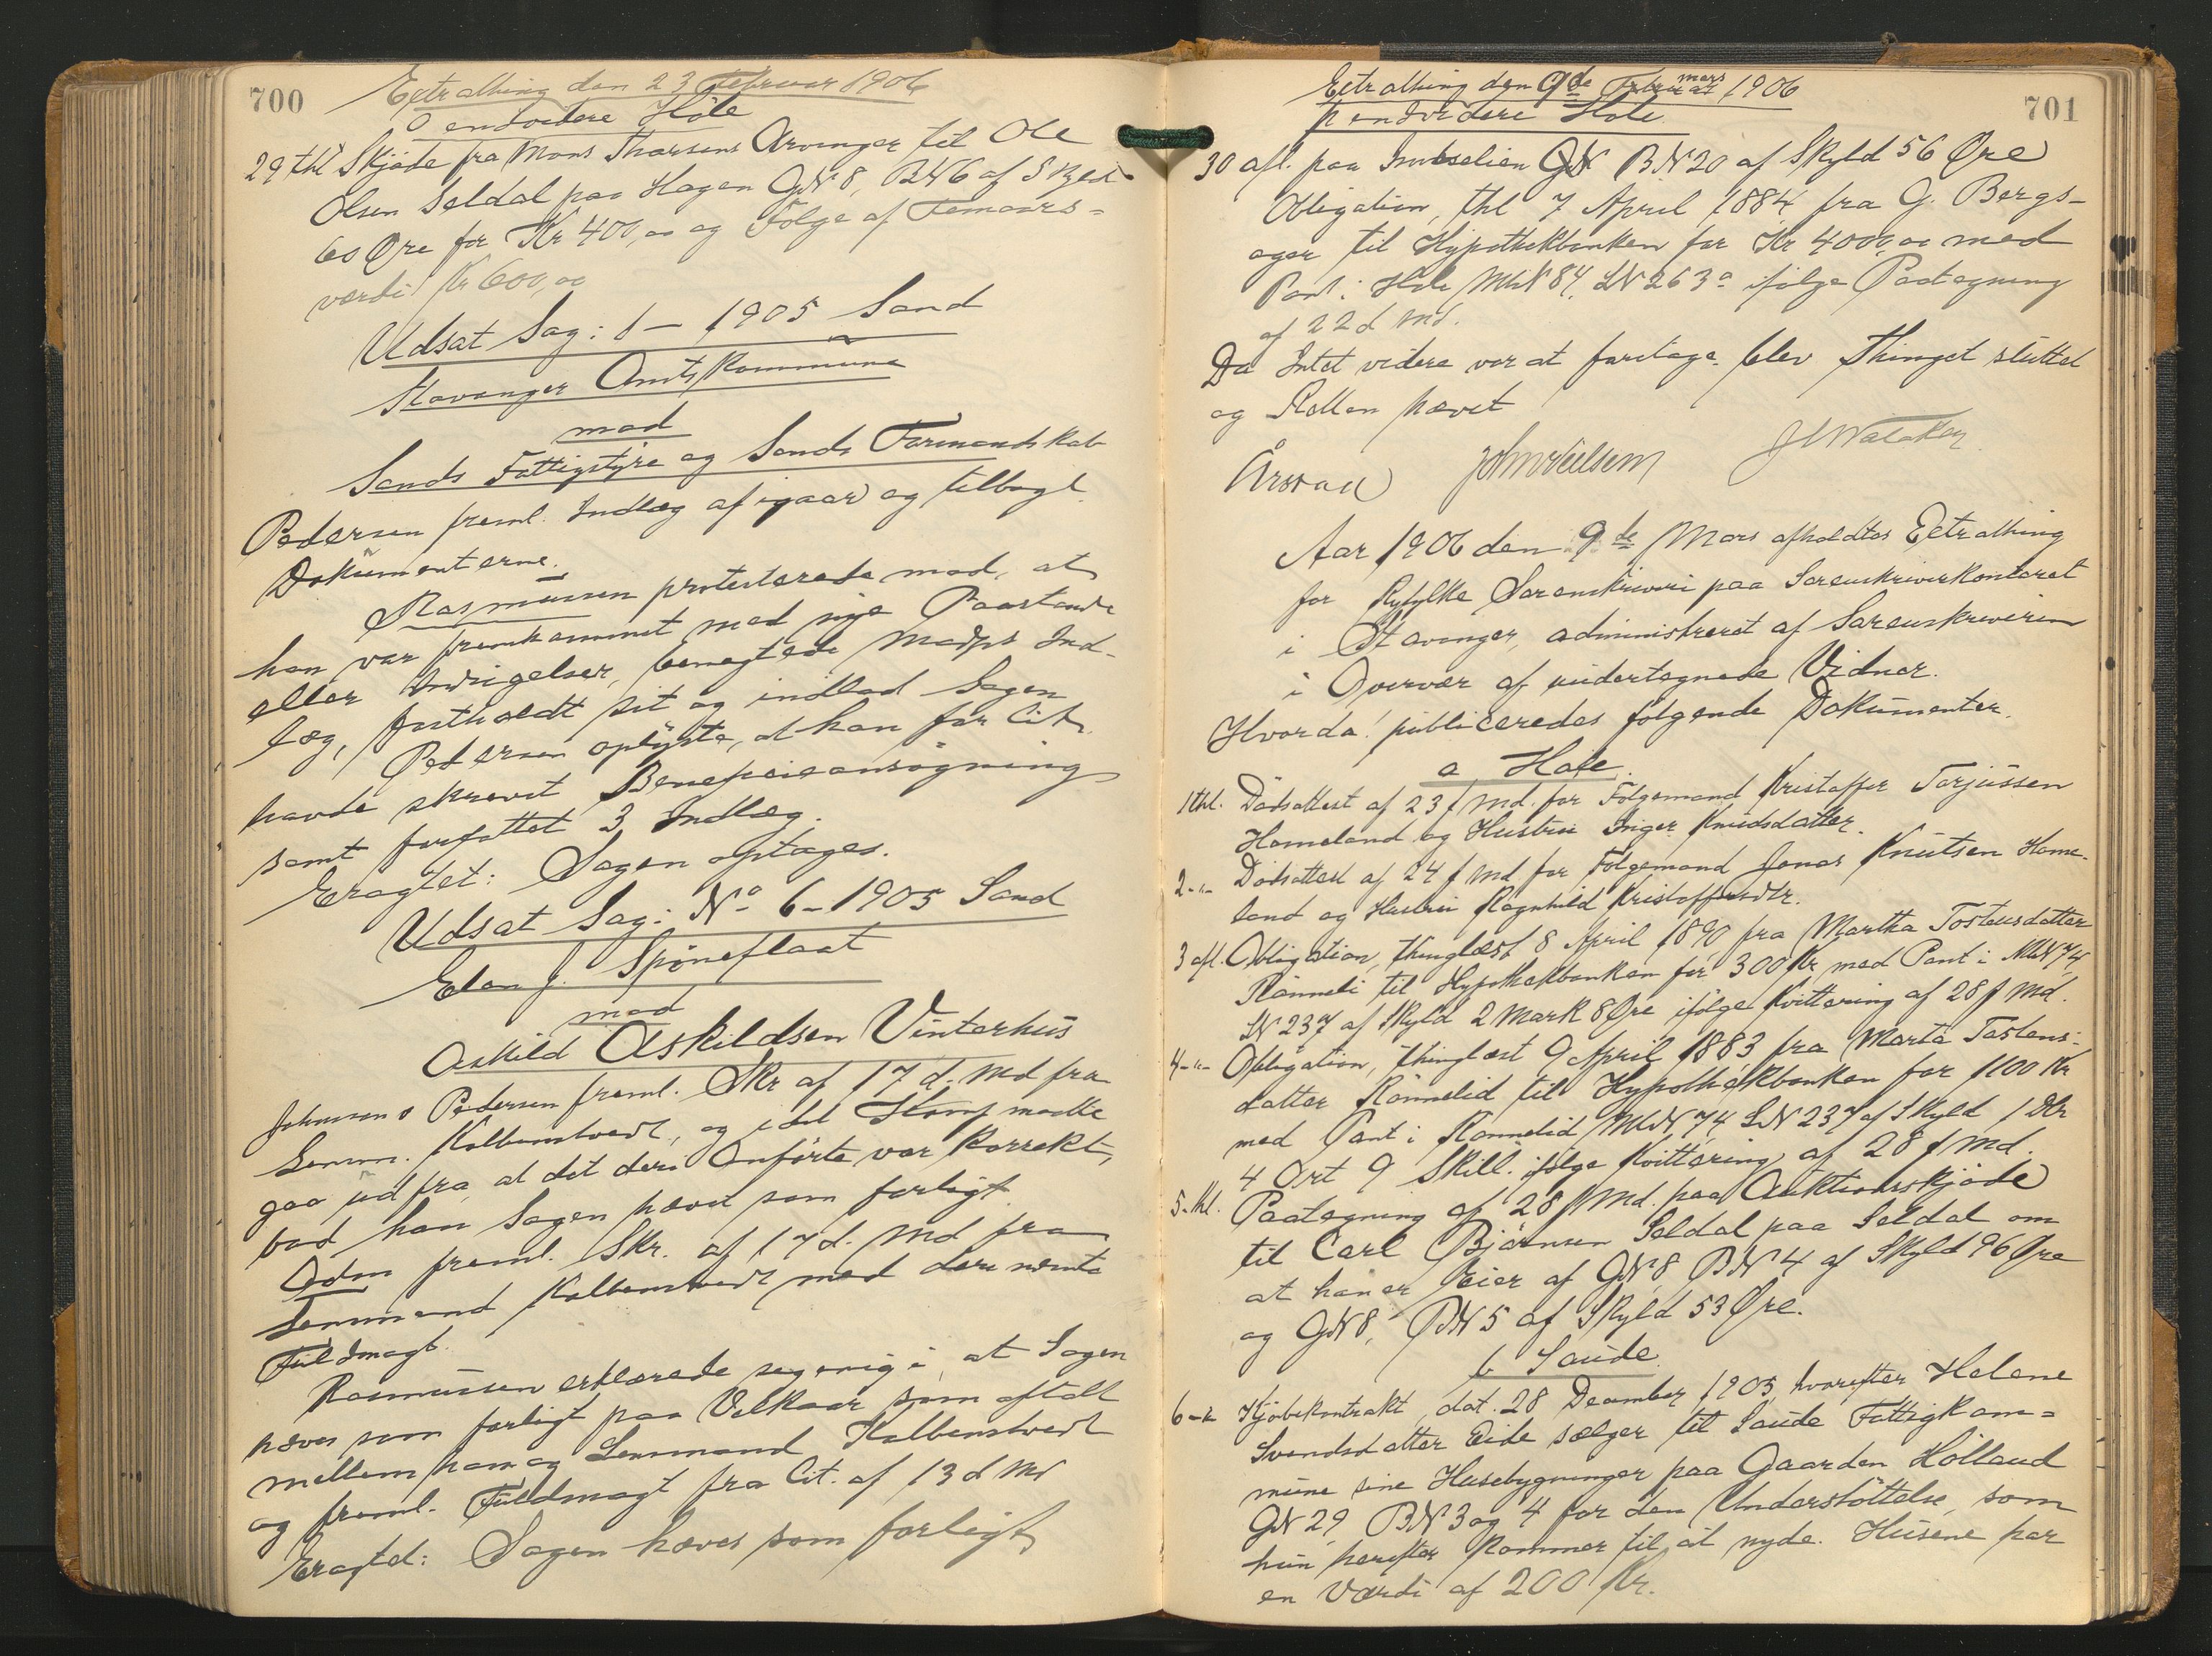 700
Extrathing den 23 Februar 1906
O endvidere Höle
29 thl Skjöde fra Mons Thorsens Arvinger til Ole
Olsen Seldal paa Hagen GN 8, BN 6 af Skyld
60 Øre for Kr 400,00 og Følge af Femaars-
værdi Kr 600,00
Udsat Sag: 1 - 1905 Sand
Stavanger Amtskommune
mod
Sands Fattigstyre og Sands Formandskab
Pedersen freml. Indlæg af igaar og tilbagl.
Dokumenterne.
Rasmussen protesterede mod, at
han var fremkommet med nye Paastande
eller Indsigelser, benegtede Modps Ind-
læg, fastholdt sit og indlod Sagen
Pedersen oplyste, at han for Cit.
havde skrevet Beneficieansøgning
samt forfattet 3 Indlæg.
Eragtet: Sagen optages.
Udsat Sag: No 6 - 1905 Sand
Elen J. Spöneflaat
mod
Askild Askildsen Vinterhus
Johnsen o Pedersen freml. Skr af 17 d. Md fra
Lensm. Kolbenstvedt, og idet Stamp maatte
gaa ud fra, at det deri Anførte var korrekt,
bad han Sagen hævet som forligt.
Odm freml. Skr. af 17 d. Md fra
Lensmand Kolbenstvedt med deri nævnte
Fuldmagt.
Rasmussen erklærede sig enig i, at Sagen
hæves som forligt paa Vilkaar som aftalt
mellem ham og Lensmand Kolbenstvedt
og freml. Fuldmagt fra Cit. af 13 d Md
Eragtet: Sagen hæves som forligt
701
Extrathing den 9de Februar mars 1906
p endvidere Hole
30 afl. paa Imbselien GN BN 20 af Skyld 56 Øre
Obligation, thl 7 April 1884 fra G. Bergs-
ager til Hypothekbanken for Kr 4000,00 med
Pant i Hole MN 84, LN 263a ifølge Paategning
af 22 d Md.
Da Intet videre var at foretage blev Thinget sluttet
og Retten hævet
Aar 1906 den 9de Mars afholdtes Extrathing
for Ryfylke Sorenskriveri paa Sorenskriverkontoret
i Stavanger, administreret af Sorenskriveren
i Overvær af undertegnede Vidner.
Hvorda publiceredes følgende Dokumenter.
a Hole
1 thl. Dödsattest af 23 f Md. for Følgemand Kristoffer Torjussen
Hommeland og Hustru Inger Knudsdatter.
2-"- Dödsattest af 24 f Md for Følgemand Jonas Knutsen Home-
land og Hustru Ragnhild Kristoffersdtr.
3 afl. Obligation, thinglæst 8 April 1890 fra Martha Tostensdatter
Rönneli til Hypothekbanken for 300 Kr med Pant i MN 74,
LN 237 af Skyld 2 Mark 8 Øre ifølge Kvittering af 28 f Md.
4-"- Obligation, thinglæst 9 April 1883 fra Marta Tostens-
datter Rönnelid til Hypothekbanken for 1100 Kr
med Pant i Rönnelid MN 74 LN 237 af Skyld 1 Dlr
4 Ort 9 Skill. ifølge Kvittering af 28 f Md.
5-thl. Paategning af 28 f Md. paa Auktionsskjöde
til Carl Bjørnsen Seldal paa Seldal om
at han er Eier af GN 8, BN 4 af Skyld 96 Øre
og GN 8, BN 5 af Skyld 53 Øre.
b Saude
6-"- Kjöbekontrakt, dat. 28 December 1905, hvorefter Helene
Svendsdatter Eide sælger til Saude Fattigkom-
mune sine Husebygninger paa Gaarden Hölland
GN 29 BN 3 og 4 for den Understöttelse, som
hun herefter kommer til at nyde. Husene har
en Værdi af 200 Kr.